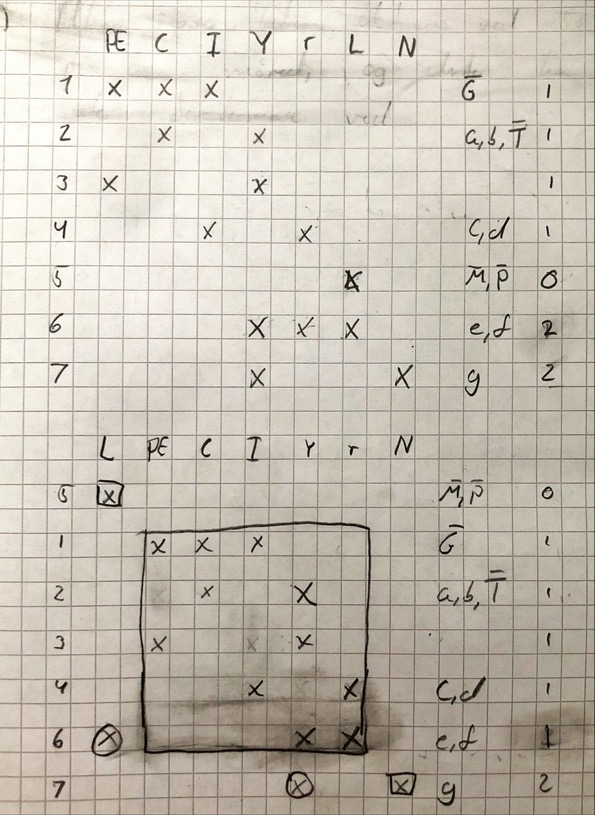 )
PE C I Y r L N
1 x x x Ḡ 1
2 x x a, b, T̿ 1
3 x x 1
4 x x c, d 1
5 x M̄, P̄ 0
6 x x x e, f 2
7 x x g 2
L PE C I Y r N
5 x M̄, P̄ 0
1 x x x Ḡ 1
2 x x a, b, T̿ 1
3 x x 1
4 x x c, d 1
6 x x x e, f 1
7 x x g 2